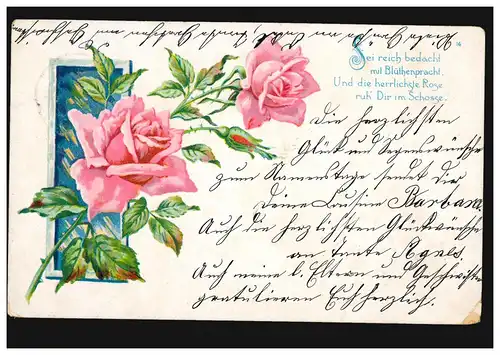 Sei reich bedacht
mit Blüthenpracht.
Und die herrlichste Rose
ruh' Dir im Schosse.
Die herzlichsten
Glück und Segenswünsche
zum Namenstage sendet dir
Deine Cousine Barbara
Auch die herzlichsten Glückwünsche
an Tante Agnes
Auch meine l. Eltern und Geschwister
gratulieren Euch herzlich.